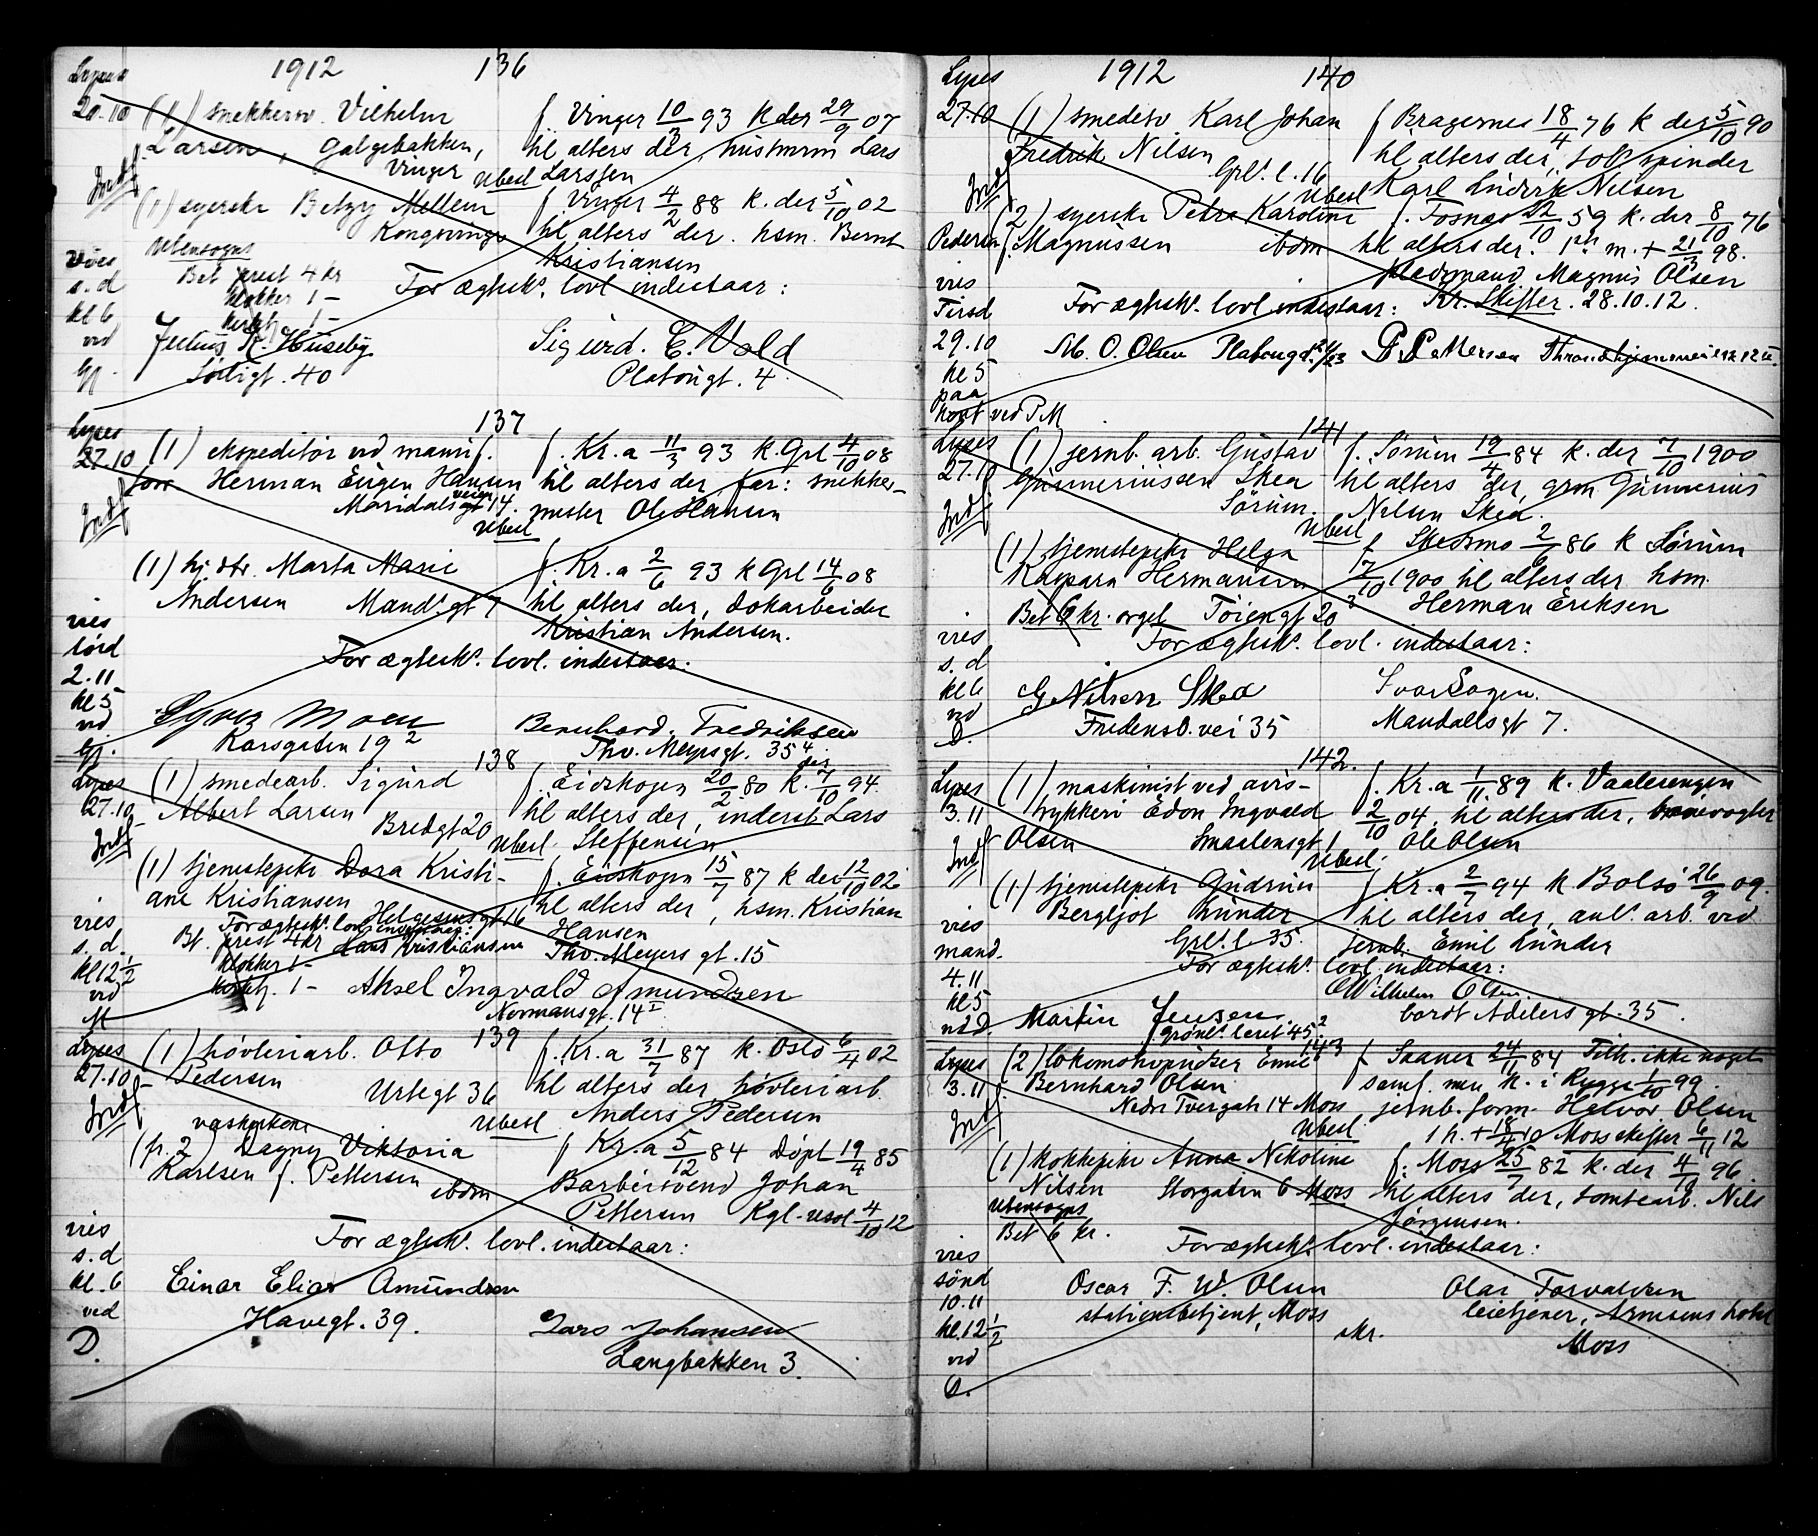 1912 136
Lyses
20.10 (1) snekkersv. Vilhelm f. Vinger 10/3 93 k der 29/9 07
Larsen, Galgebakken, til alters der, husmann Lars
Vinger Ubesl Larssen
Indf
(1) syerske Betzy Mellem f Vinger 4/2 88 k. der 5/10 02
Kongsvinger til alters der. hsm. Bernt
Utensogns Kristiansen
vies Bet prest 4 kr
s.d klokker 1 - For ægtesk. lovl. indestaar:
kl 6 kirketj 1 -
ved Julius K. Huseby Sigurd. E. Vold
Gj. Sørligt. 40 Platougt. 4.
137
Lyses
27.10 (1) ekspeditør ved manuf. f. Kr.a 11/3 93 k Grl 4/10 08
forr Herman Eugen Hansen til alters der, far: snekker-
Maridalsveien 14. mester Ole Hansen
Indf Ubesl
(1) hj. dtr. Marta Marie f. Kr.a 2/6 93 k Grl 14/6 08
Andersen Mands.gt 7 til alters der, dokarbeider
vies Kristian Andersen.
lørd For ægtesk. lovl. indestaar:
2.11
kl 5
ved Syver Moen Bernhard. Fredriksen
Gj. Karsgaten 19 2 Thv. Meyersgt. 35 4
138
Lyses (1) smedearb. Sigurd f. Eidskogen 20/2 80 k. der 7/10 94.
27.10 Albert Larsen til alters der, inderst Lars
Bredgt 20 Steffensen
Indf Ubesl.
(1) tjenestepike Dora Kristi- f. Eidskogen 15/7 87 k der 12/10 02
ane Kristiansen til alters der, hsm. Kristian
Helgesensgt 16 Hansen
vies For ægtesk. lovl. indestaar:
s.d. Bt. prest 4 kr Lars Kristiansen Thv. Meyers gt. 15
kl 12 1/2 klokker 1 -
ved kirketj. 1 - Aksel Ingvald Amundsen
M Normansgt. 14 I
139
Lyses (1) høvleriarb. Otto f. Kr.a 31/7 87 k. Oslo 6/4 02
27.10 Pedersen til alters der høvleriarb.
Urtegt 36 Anders Pedersen
Indf Ubesl
vaskerkone
(fr. 2) Dagny Viktoria f Kr.a 5/12 84 Døpt 19/4 85
Karlsen f. Pettersen ibdm Barbersvend Johan
Pettersen Kgl. resol 4/10 12
vies For ægtesk. lovl. indestaar:
s.d
kl. 6 Einar Elias Amundsen
ved Havegt. 39.
D. Lars Johansen
Langbakken 3.
1912 140
Lyses
27.10 (1) smedesv. Karl Johan f Bragernes 18/4 76 k der 5/10 90
Fredrik Nilsen til alters der, tob. spinder
Grl. l. 16 Karl Ludvik Nilsen
Indf Ubesl
(2) syerske Petra Karoline f. Fosnes 22/10 59 k. der 8/10 76
Pedersen f. Magnussen ibdm til alters der. 1ste m. + 21/3 98.
vies Gaardmand Magnus Olsen
Tirsd For ægtesk. lovl. indestaar: Kr. Skifter. 28.10.12.
29.10 M. O. Olsen Platougt. P. Pettersen Throndhjemsveien 12
kl 5
paa
kont ved PM
141
Lyses (1) jernb. arb. Gustav f. Sørum 19/4 84 k. der 7/10 1900
27.10 Gunneriussen Skea til alters der, grm Gunnerius
Sørum. Nilsen Skea.
Indf Ubesl
(1) tjenestepike Helga f Skedsmo 2/6 86 k Sørum
Kaspara Hermansen 17/10 1900 til alters der hsm.
Bet 6 kr. orgel Tøiengt 20 2 Herman Eriksen
vies For ægtesk. lovl. indestaar:
s. d
kl 6 G Nilsen Skea
ved Fredensb. vei 35 Mandalls gt 7.
D.
142.
Lyses (1) maskinist ved avis- f. Kr.a 1/11 89 k. Vaalerengen
3.11 trykkeri Edon Ingvald 2/10 04, til alters der, banevogter
Olsen Smaalensgt 1 Ole Olsen
Indf Ubesl.
(1) tjenestepike Gudrun f Kr.a 2/7 94 k. Bolsø 26/9 09.
Bergljot Lunder til alters der, anl. arb. ved
vies Grl. l 35. jernb. Emil Lunder
mand. For ægtesk. lovl. indestaar:
4.11 O Wilhelm Olsen.
kl 5 Martin Jensen Cordt Adelers gt. 35.
ved D. Grønl. leret 45 2
143
Lyses (2) lokomotivpudser Emil f Saaner 24/11 84 Tilh. ikke noget
3.11 Bernhard Olsen samf. men k. i Rygge 1/10 99.
Nedre Tvergate 14 Moss jernb. form. Halvor Olsen
Indf Ubesl 1 h. + 18/4 10 Moss skifter 6/11 12
(1) kokkepike Anna Nikoline f. Moss 25/7 82 k. der 4/10 96.
Nilsen Storgaten 6 Moss til alters der, tomtearb. Nils
Utensogns Jørgensen.
Bet 6 kr.
vies For ægtesk. lovl. indestaar:
sønd Oscar F. W. Olsen Olai Torvaldsen
10.11 stationsbetjent, Moss leietjener, Arnesens hotel
kl. 12 1/2 skr. Moss
ved
D.